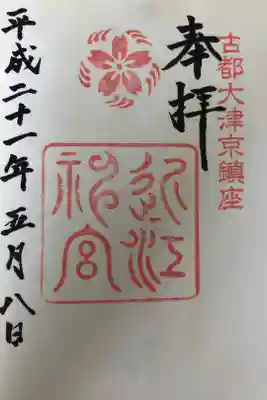 古都大津京鎮座
奉拝
近江
神宮
平成二十一年五月八日